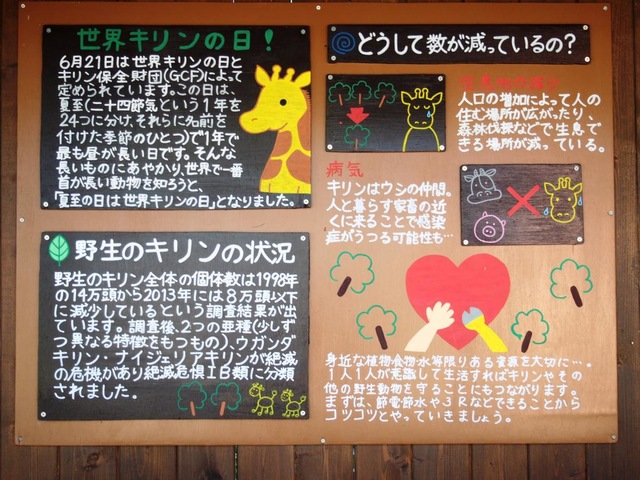 世界キリンの日!
6月21日は世界キリンの日と
キリン保全財団(GCF)によって
定められています。この日は、
夏至(二十四節気という1年を
24つに分け、それらに名前を
付けた季節のひとつ)で1年で
最も昼が長い日です。そんな
長いものにあやかり、世界で一番
首が長い動物を知ろうと、
「夏至の日は世界キリンの日」となりました。
野生のキリンの状況
野生のキリン全体の個体数は1998年
の14万頭から2013年には8万頭以下
に減少しているという調査結果が出
ています。調査後、2つの亜種(少しず
つ異なる特徴をもつもの)、ウガンダ
キリン・ナイジェリアキリンが絶滅
の危機があり絶滅危惧1B類に分類
されました。
どうして数が減っているの?
人口の増加によって人の
住む場所が広がったり、
森林伐採などで生息で
きる場所が減っている。
病気
キリンはウシの仲間。
人と暮らす家畜の近
くに来ることで感染
症がうつる可能性も…
身近な植物食物水等限りある資源を大切に…。
1人1人が意識して生活すればキリンやその
他の野生動物を守ることにもつながります。
まずは、節電節水や3Rなどできることから
コツコツとやっていきましょう。